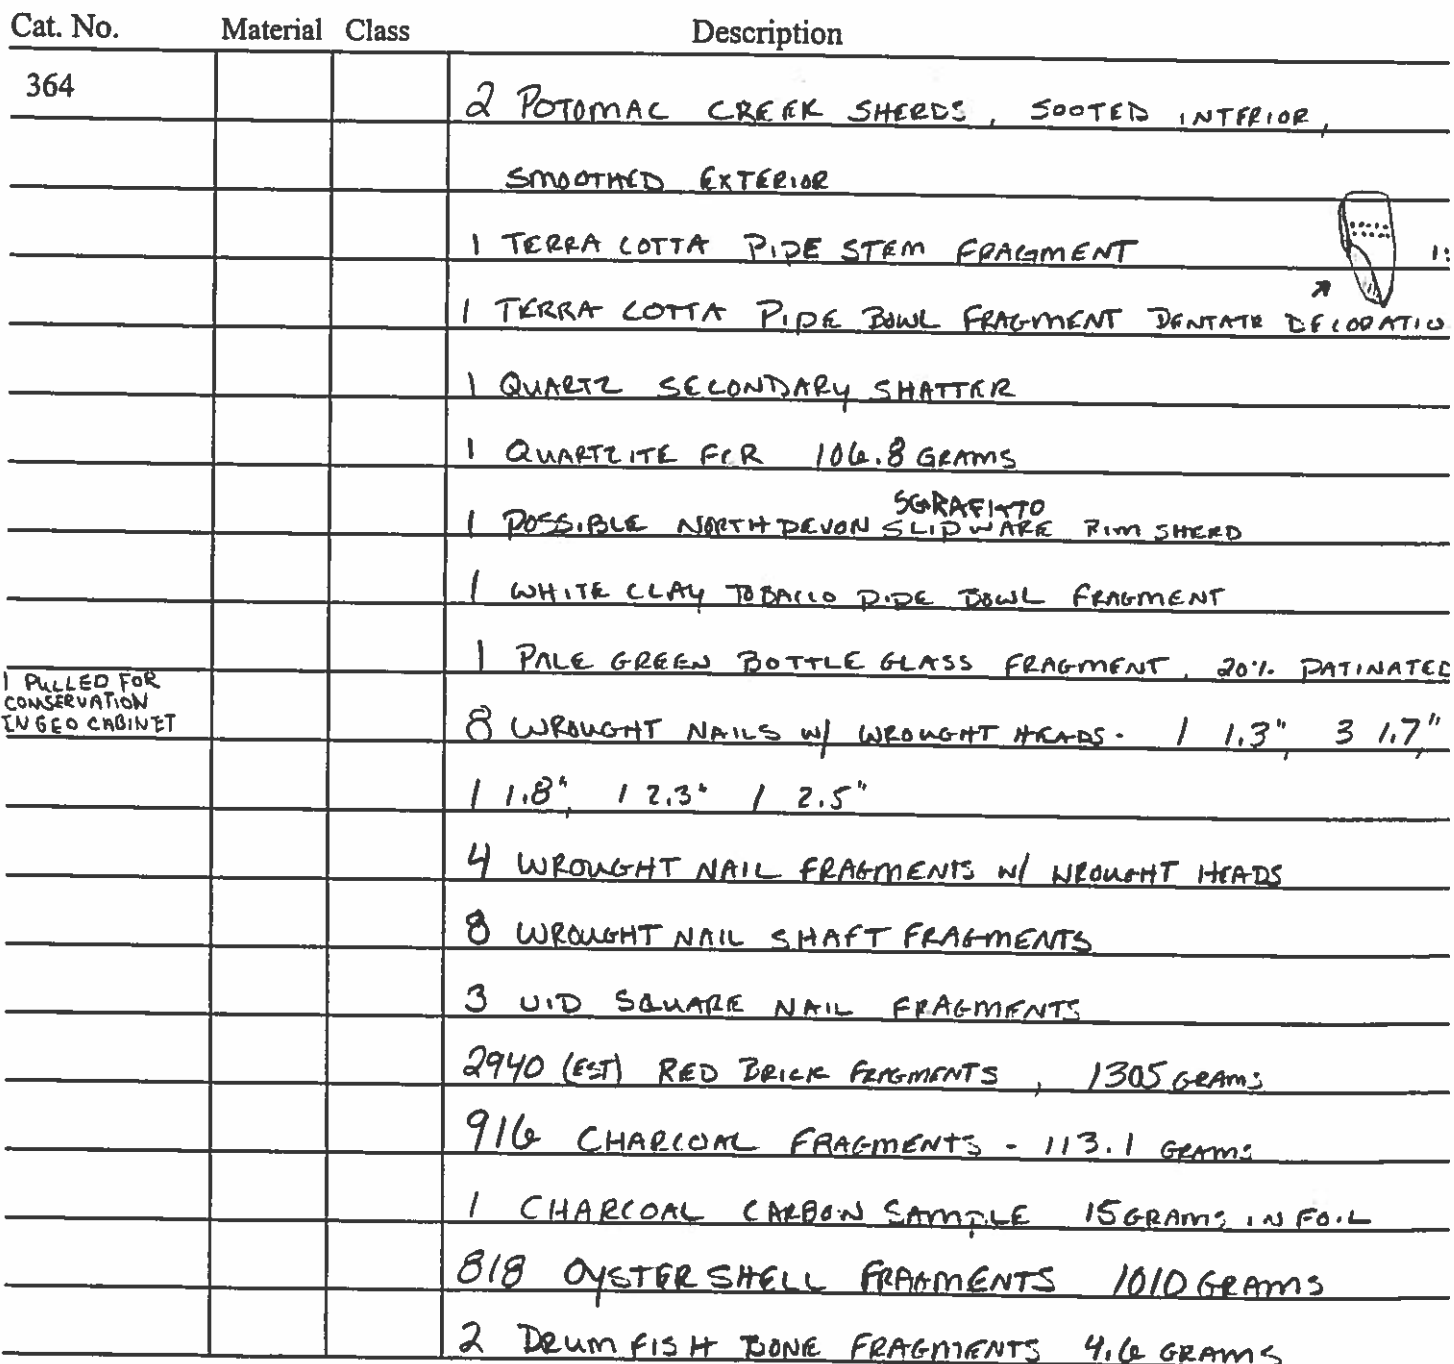 Cat. No. Material Class Description
364
2 POTOMAC CREEK SHERDS, SOOTED INTERIOR,
SMOOTHED EXTERIOR
1 TERRA COTTA PIPE STEM FRAGMENT
1 TERRA COTTA PIPE BOWL FRAGMENT DENTATE DECORATIO
1 QUARTZ SECONDARY SHATTER
1 QUARTZITE FCR 106.8 GRAMS
SGRAFITTO
1 POSSIBLE NORTH DEVON SLIPWARE RIM SHERD
1 WHITE CLAY TOBACCO PIPE BOWL FRAGMENT
1 PALE GREEN BOTTLE GLASS FRAGMENT, 20% PATINATED
1 PULLED FOR
CONSERVATION
IN GEO CABINET
8 WROUGHT NAILS W/ WROUGHT HEADS - 1 1.3", 3 1.7"
1 1.8", 1 2.3" 1 2.5"
4 WROUGHT NAIL FRAGMENTS W/ WROUGHT HEADS
8 WROUGHT NAIL SHAFT FRAGMENTS
3 UID SQUARE NAIL FRAGMENTS
2940 (EST) RED BRICK FRAGMENTS, 1305 GRAMS
916 CHARCOAL FRAGMENTS - 113.1 GRAMS
1 CHARCOAL CARBON SAMPLE 15 GRAMS IN FOIL
818 OYSTER SHELL FRAGMENTS 1010 GRAMS
2 DRUM FISH BONE FRAGMENTS 4.6 GRAMS